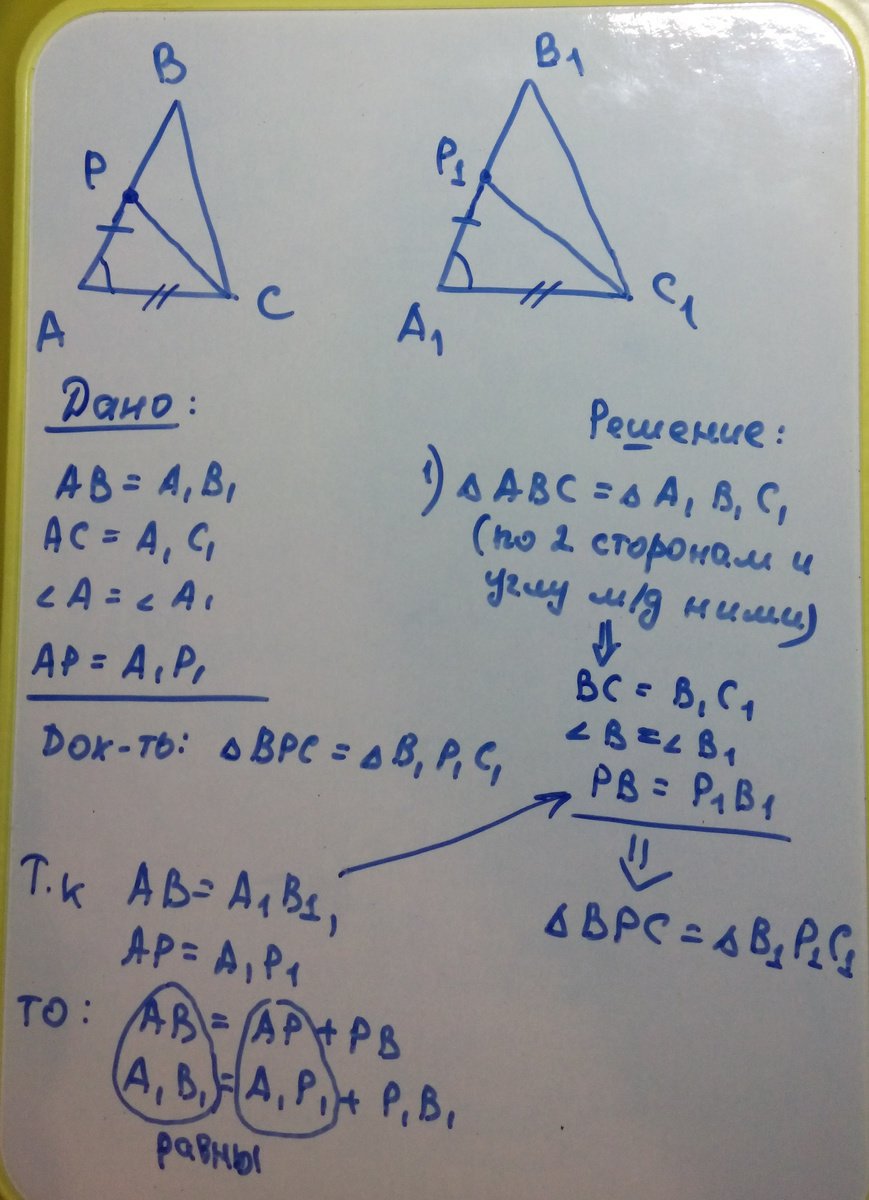 B
B1
P
P1
A
C
A1
C1
Дано:
AB = A1B1
AC = A1C1
∠A = ∠A1
AP = A1P1
Док-ть: △BPC = △B1P1C1
Решение:
1) △ABC = △A1B1C1
(по 2 сторонам и
углу м/д ними)
⇓
BC = B1C1
∠B = ∠B1
PB = P1B1
⇓
△BPC = △B1P1C1
Т.к AB = A1B1,
AP = A1P1
то: AB = AP + PB
A1B1 = A1P1 + P1B1
равны